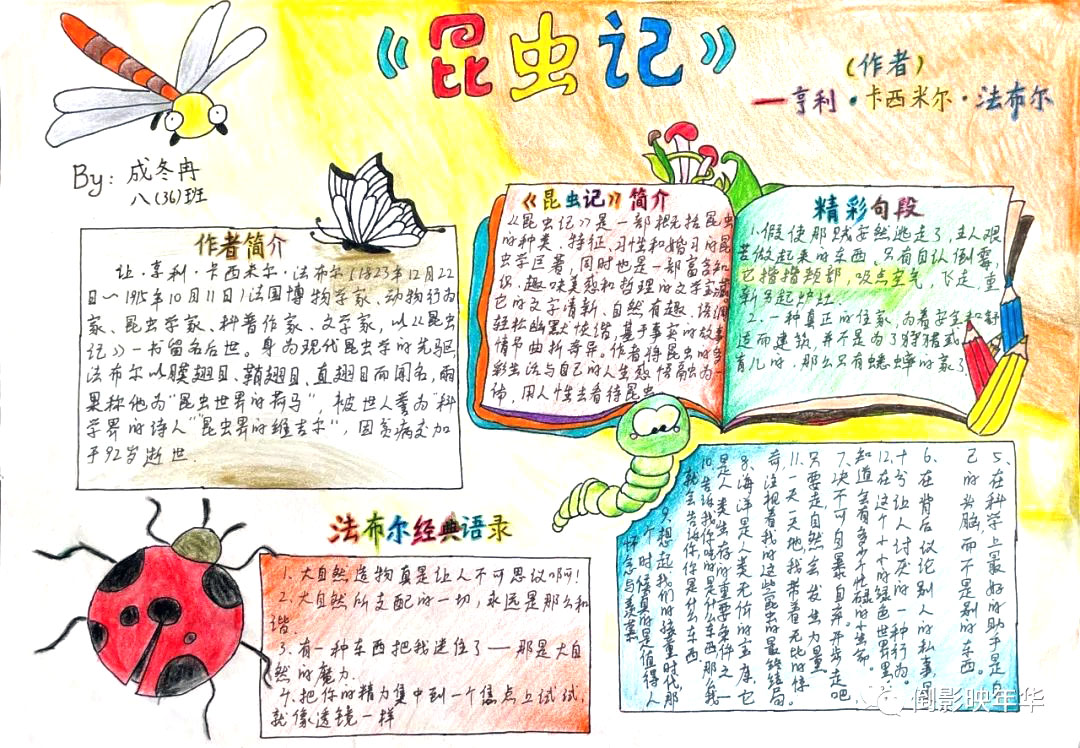 《昆虫记》
(作者)
一亨利·卡西米尔·法布尔
By: 成冬冉
八(36)班
作者简介
让·亨利·卡西米尔·法布尔(1823年12月22
日～1915年10月11日)法国博物学家、动物行为
家、昆虫学家、科普作家、文学家,以《昆虫
记》一书留名后世。身为现代昆虫学的先驱,
法布尔以膜翅目、鞘翅目、直翅目而闻名,雨
果称他为“昆虫世界的荷马”,被世人誉为“科
学界的诗人”“昆虫界的维吉尔”,因贫病交加
于92岁逝世.
《昆虫记》简介
《昆虫记》是一部概括昆虫
的种类、特征、习性和婚习的昆
虫学巨著,同时也是一部富含知
识、趣味美感和哲理的文学宝藏
它的文字清新、自然有趣、语调
轻松幽默诙谐,基于事实的故事
情节曲折奇异。作者将昆虫的多
彩生活与自己的人生感悟融为一
体,用人性去看待昆虫
精彩句段
1.假使那贼安然逃走了,主人艰
苦做起来的东西,只有自认倒霉,
它揩揩颊部,吸点空气,飞走,重
新另起炉灶.
2.一种真正的住家,为着安全和舒
适而建筑,并不是为了狩猎或
育儿的.那么只有蟋蟀的家了
法布尔经典语录
1.大自然造物真是让人不可思议啊!
2.大自然所支配的一切,永远是那么和
谐.
3.有一种东西把我迷住了—那是大自
然的魔力.
4.把你的精力集中到一个焦点上试试,
就像透镜一样
5、在科学上最好的助手是自
己的头脑,而不是别的东西。
6、在背后议论别人的私事是
十分让人讨厌的一种行为
12.在这个小小的绿色世界里
知道会有多少忙碌的生命。
7.决不可自暴自弃,开步走吧
只要走,自然会发生力量
11.一天一天地,我带着无比的惊
奇注视着我的这些昆虫的最终结局。
8.海洋是人类无价的宝库,它
是人类生存的重要条件之一
10.告诉我你吃的是什么东西,那么我
就会告诉你你是什么东西
9.想起我们的孩童时代,那
个时侯真的是值得人
怀念与羡慕
倒影映年华